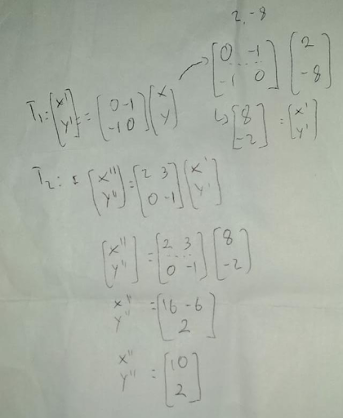 2, -8
[0 -1
-1 0] [2
-8]
T₁: [x'
y'] = [0 -1
-1 0] [x
y]
↳ [8
-2] = [x'
y']
T₂: [x''
y''] = [2 3
0 -1] [x'
y']
[x''
y''] = [2 3
0 -1] [8
-2]
x''
y'' = [16 -6
2]
x''
y'' = [10
2]